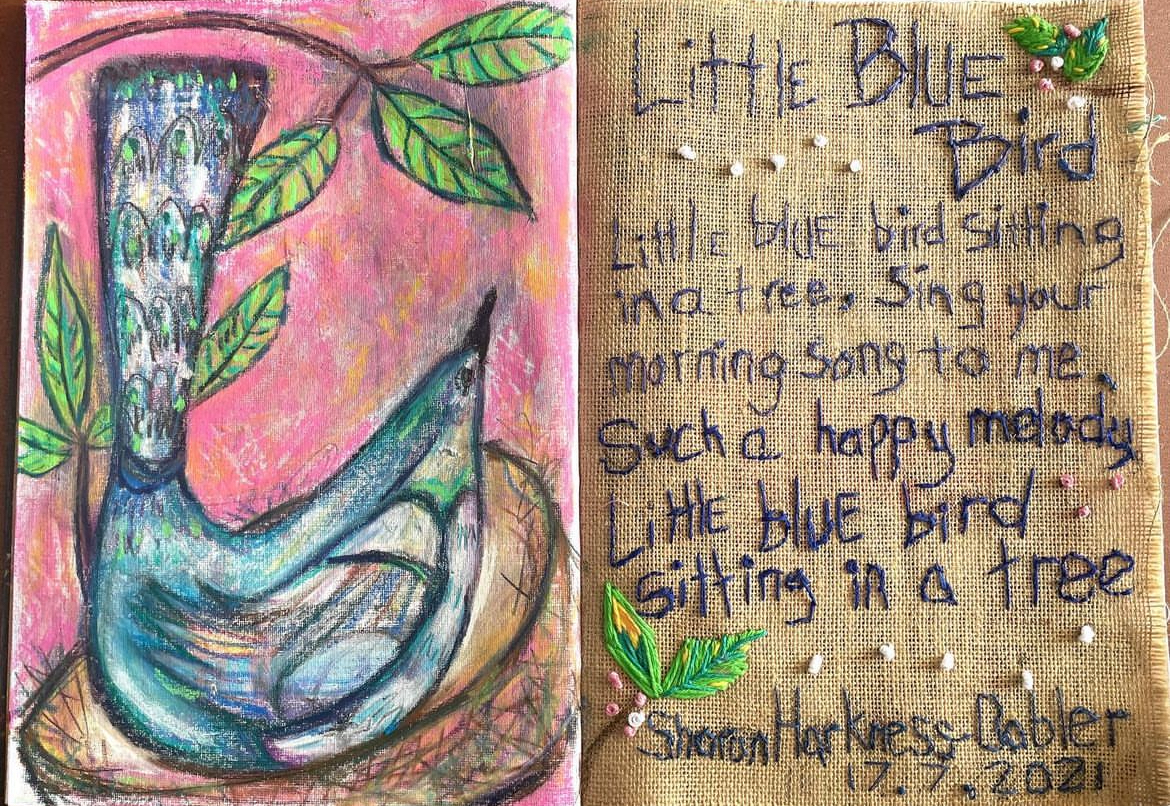 LittlE BLUE
Bird
LittlE blUE bird sitting
in a tree. Sing your
morning song to me.
Such a happy melody
LittlE blUE bird
sitting in a tree
Sharon Harkness-Dobler
17.7.2021